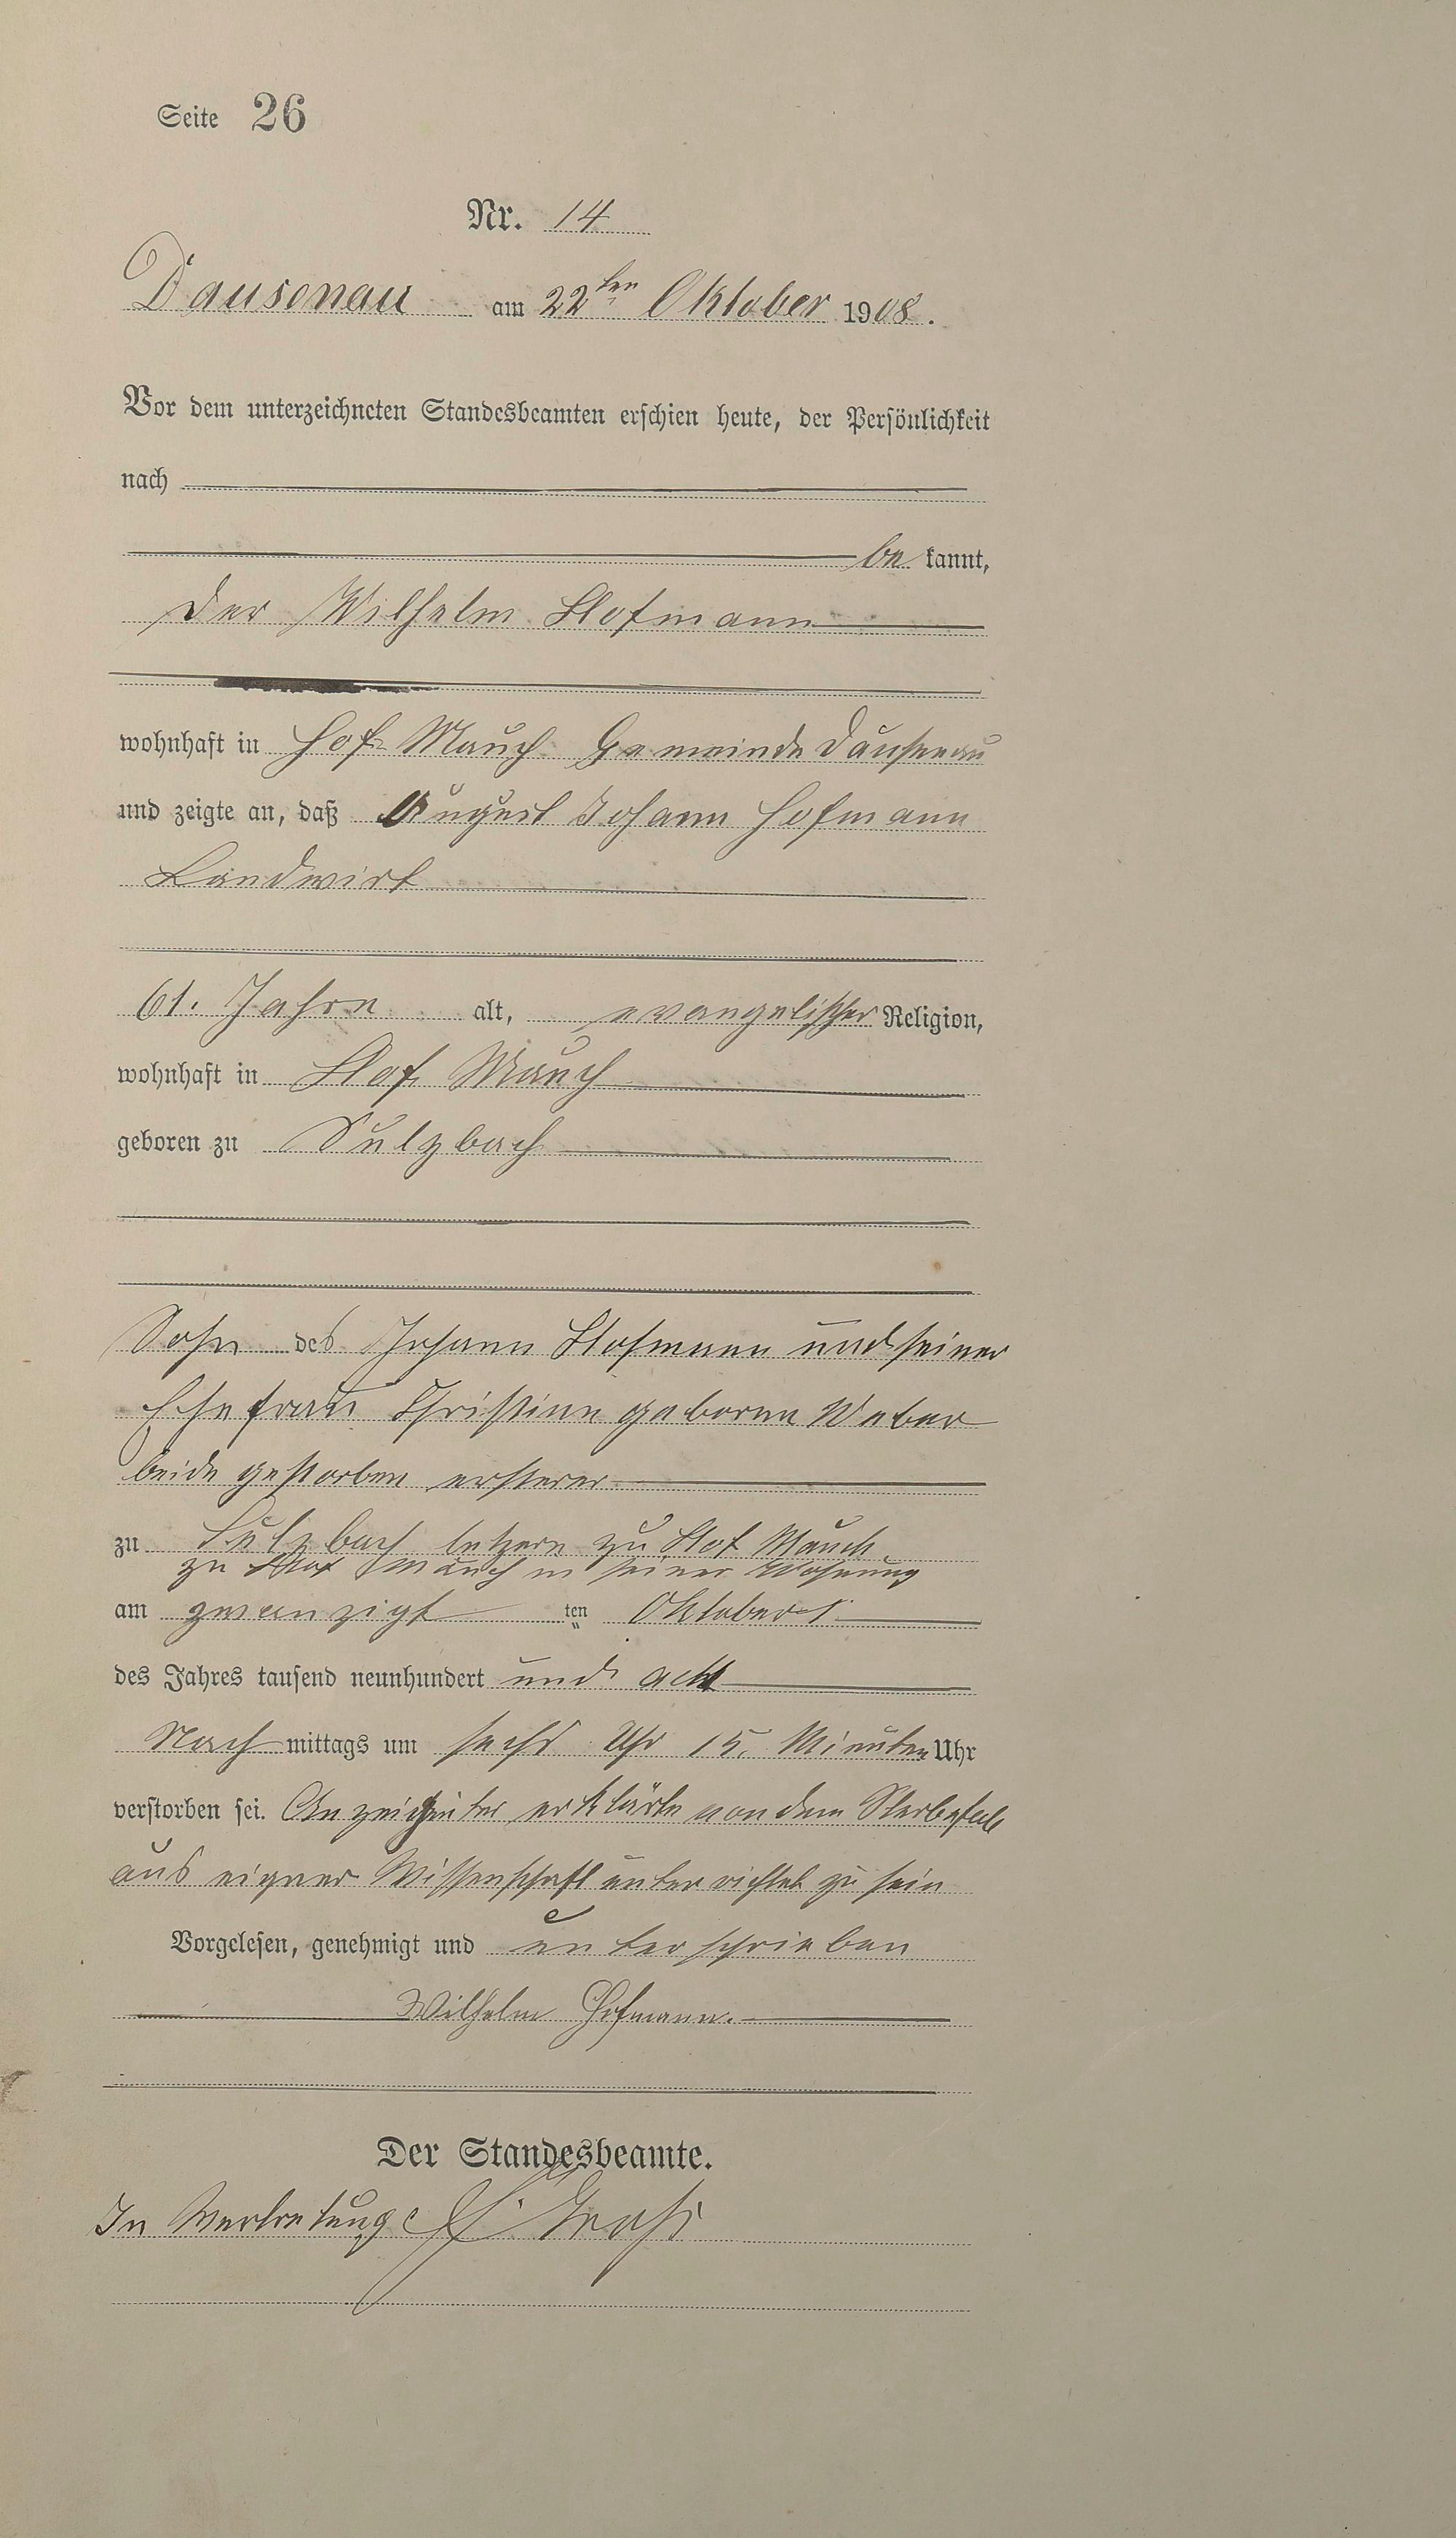 Seite 26
Nr. 14
Dausenau am 22ten Oktober 1908.
Vor dem unterzeichneten Standesbeamten erschien heute, der Persönlichkeit
nach
be kannt,
der Wilhelm Hofmann
wohnhaft in Hof Mauch Gemeinde Dausenau
und zeigte an, daß August Johann Hofmann
Landwirt
61. Jahre alt, evangelischer Religion,
wohnhaft in Hof Mauch
geboren zu Sulzbach
Sohn des Johann Hofmann und seiner
Ehefrau Christine geborne Weber
beide gestorben ersterer
zu Sulzbach letzere zu Hof Mauch
zu Hof Mauch in seiner Wohnung
am zwanzigt ten Oktober
des Jahres tausend neunhundert und acht
Nach mittags um sechs Uhr 15. Minuten Uhr
verstorben sei. erklärte von dem Sterbefall
aus eigner Wissenschaft unterrichtet zu sein
Vorgelesen, genehmigt und unterschrieben
Wilhelm Hofmann.
Der Standesbeamte.
In Vertretung